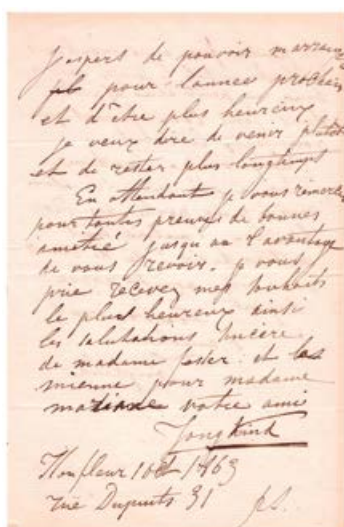 J'espers de pouvoir marrange
pour l'annee prochein
et d'être plus heureux
je veux dire de venir plutot
et de rester plus longtemps
En attendant je vous remercie
pour toutes preuves de bonnes
amitié jusqu au l'avantage
de vous revoir. je vous
prie recevez mes souhaits
le plus heureux ainsi
les salutations sincère
de madame fesser et les
mienne pour madame
votre ami
Jongkind
Honfleur 1 oct 1863
rue Dupuits 31